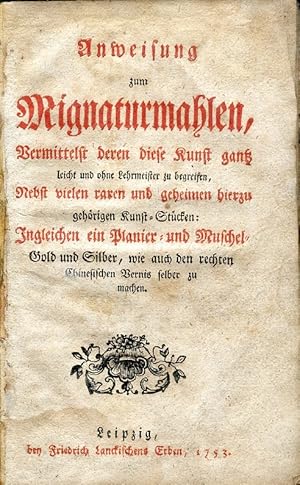 Anweisung
zum
Mignaturmahlen,
Vermittelst deren diese Kunst gantz
leicht und ohne Lehrmeister zu begreifen,
Nebst vielen raren und geheimen hierzu
gehörigen Kunst-Stücken:
Ingleichen ein Planier- und Muschel-
Gold und Silber, wie auch den rechten
Chinesischen Vernis selber zu
machen.
Leipzig,
bey Friedrich Lanckischens Erben, 1753.